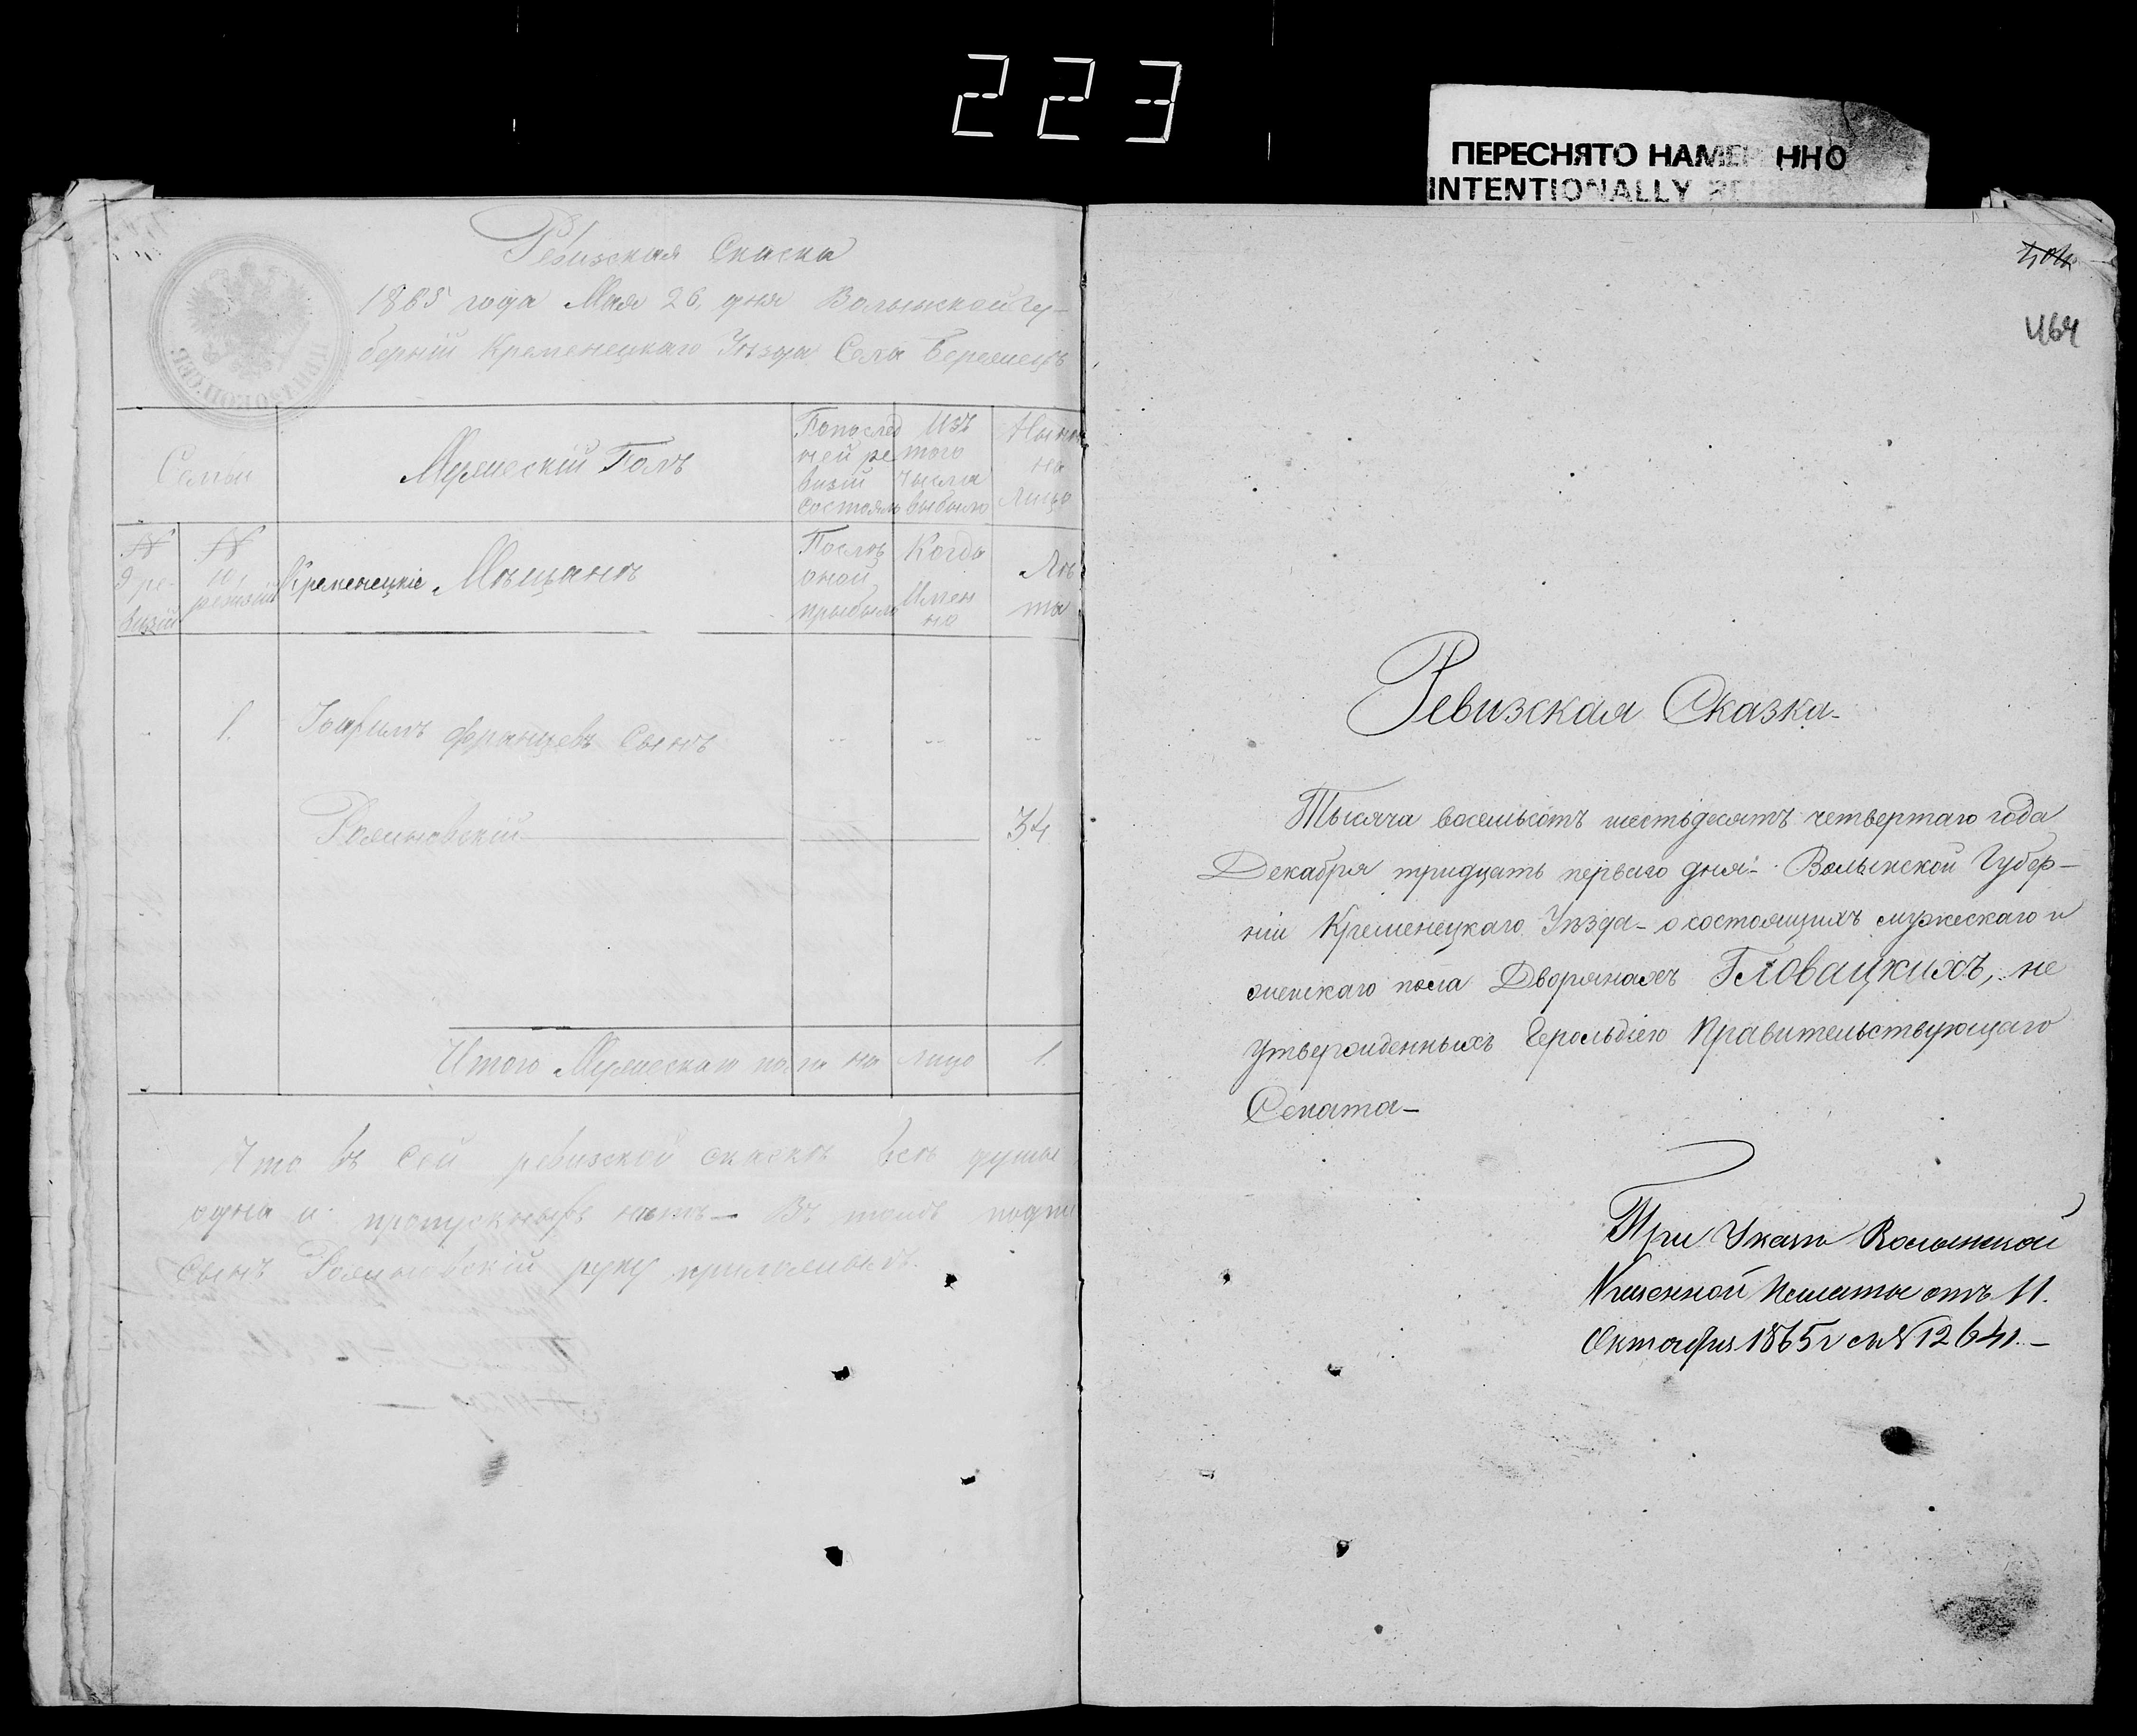 223
ПЕРЕСНЯТО НАМЕ ННО
INTENTIONALLY
Ревизская Скаска
1865 года Мая 26. дня Волынской Гу-
берній Кременецкаго Уѣзда Села Бережецъ
Семьи
Мужескій Полъ
Попослед
ней ре
визій
состояло
Изъ
того
числа
выбыло
Нынѣ
на
лицо
№
9 ре-
визій
№
10,
ревизій
Кременецкіе Мѣщане
Послѣ
оной
прибыло
Когда
Имен
но
Лѣ
та
1.
Францевъ Сынъ
34
Итого Мужескаго пола на лицо 1.
Что въ сей ревизской скаскѣ всѣ души
одна и пропускныхъ нѣтъ — Въ томъ
Сынъ руку приложивъ.
404
464
Ревизская Сказка
Тысяча восемьсотъ шестьдесятъ четвертаго года
Декабря тридцать перваго дня - Волынской Губер-
ніи Кременецкаго Уѣзда - о состоящихъ мужескаго и
женскаго пола Дворянахъ Гловацкихъ, не
утвержденныхъ Герольдіею Правительствующаго
Сената —
При Указѣ Волынской
Казенной Палаты отъ 11.
Октября 1865 г за № 12641. —